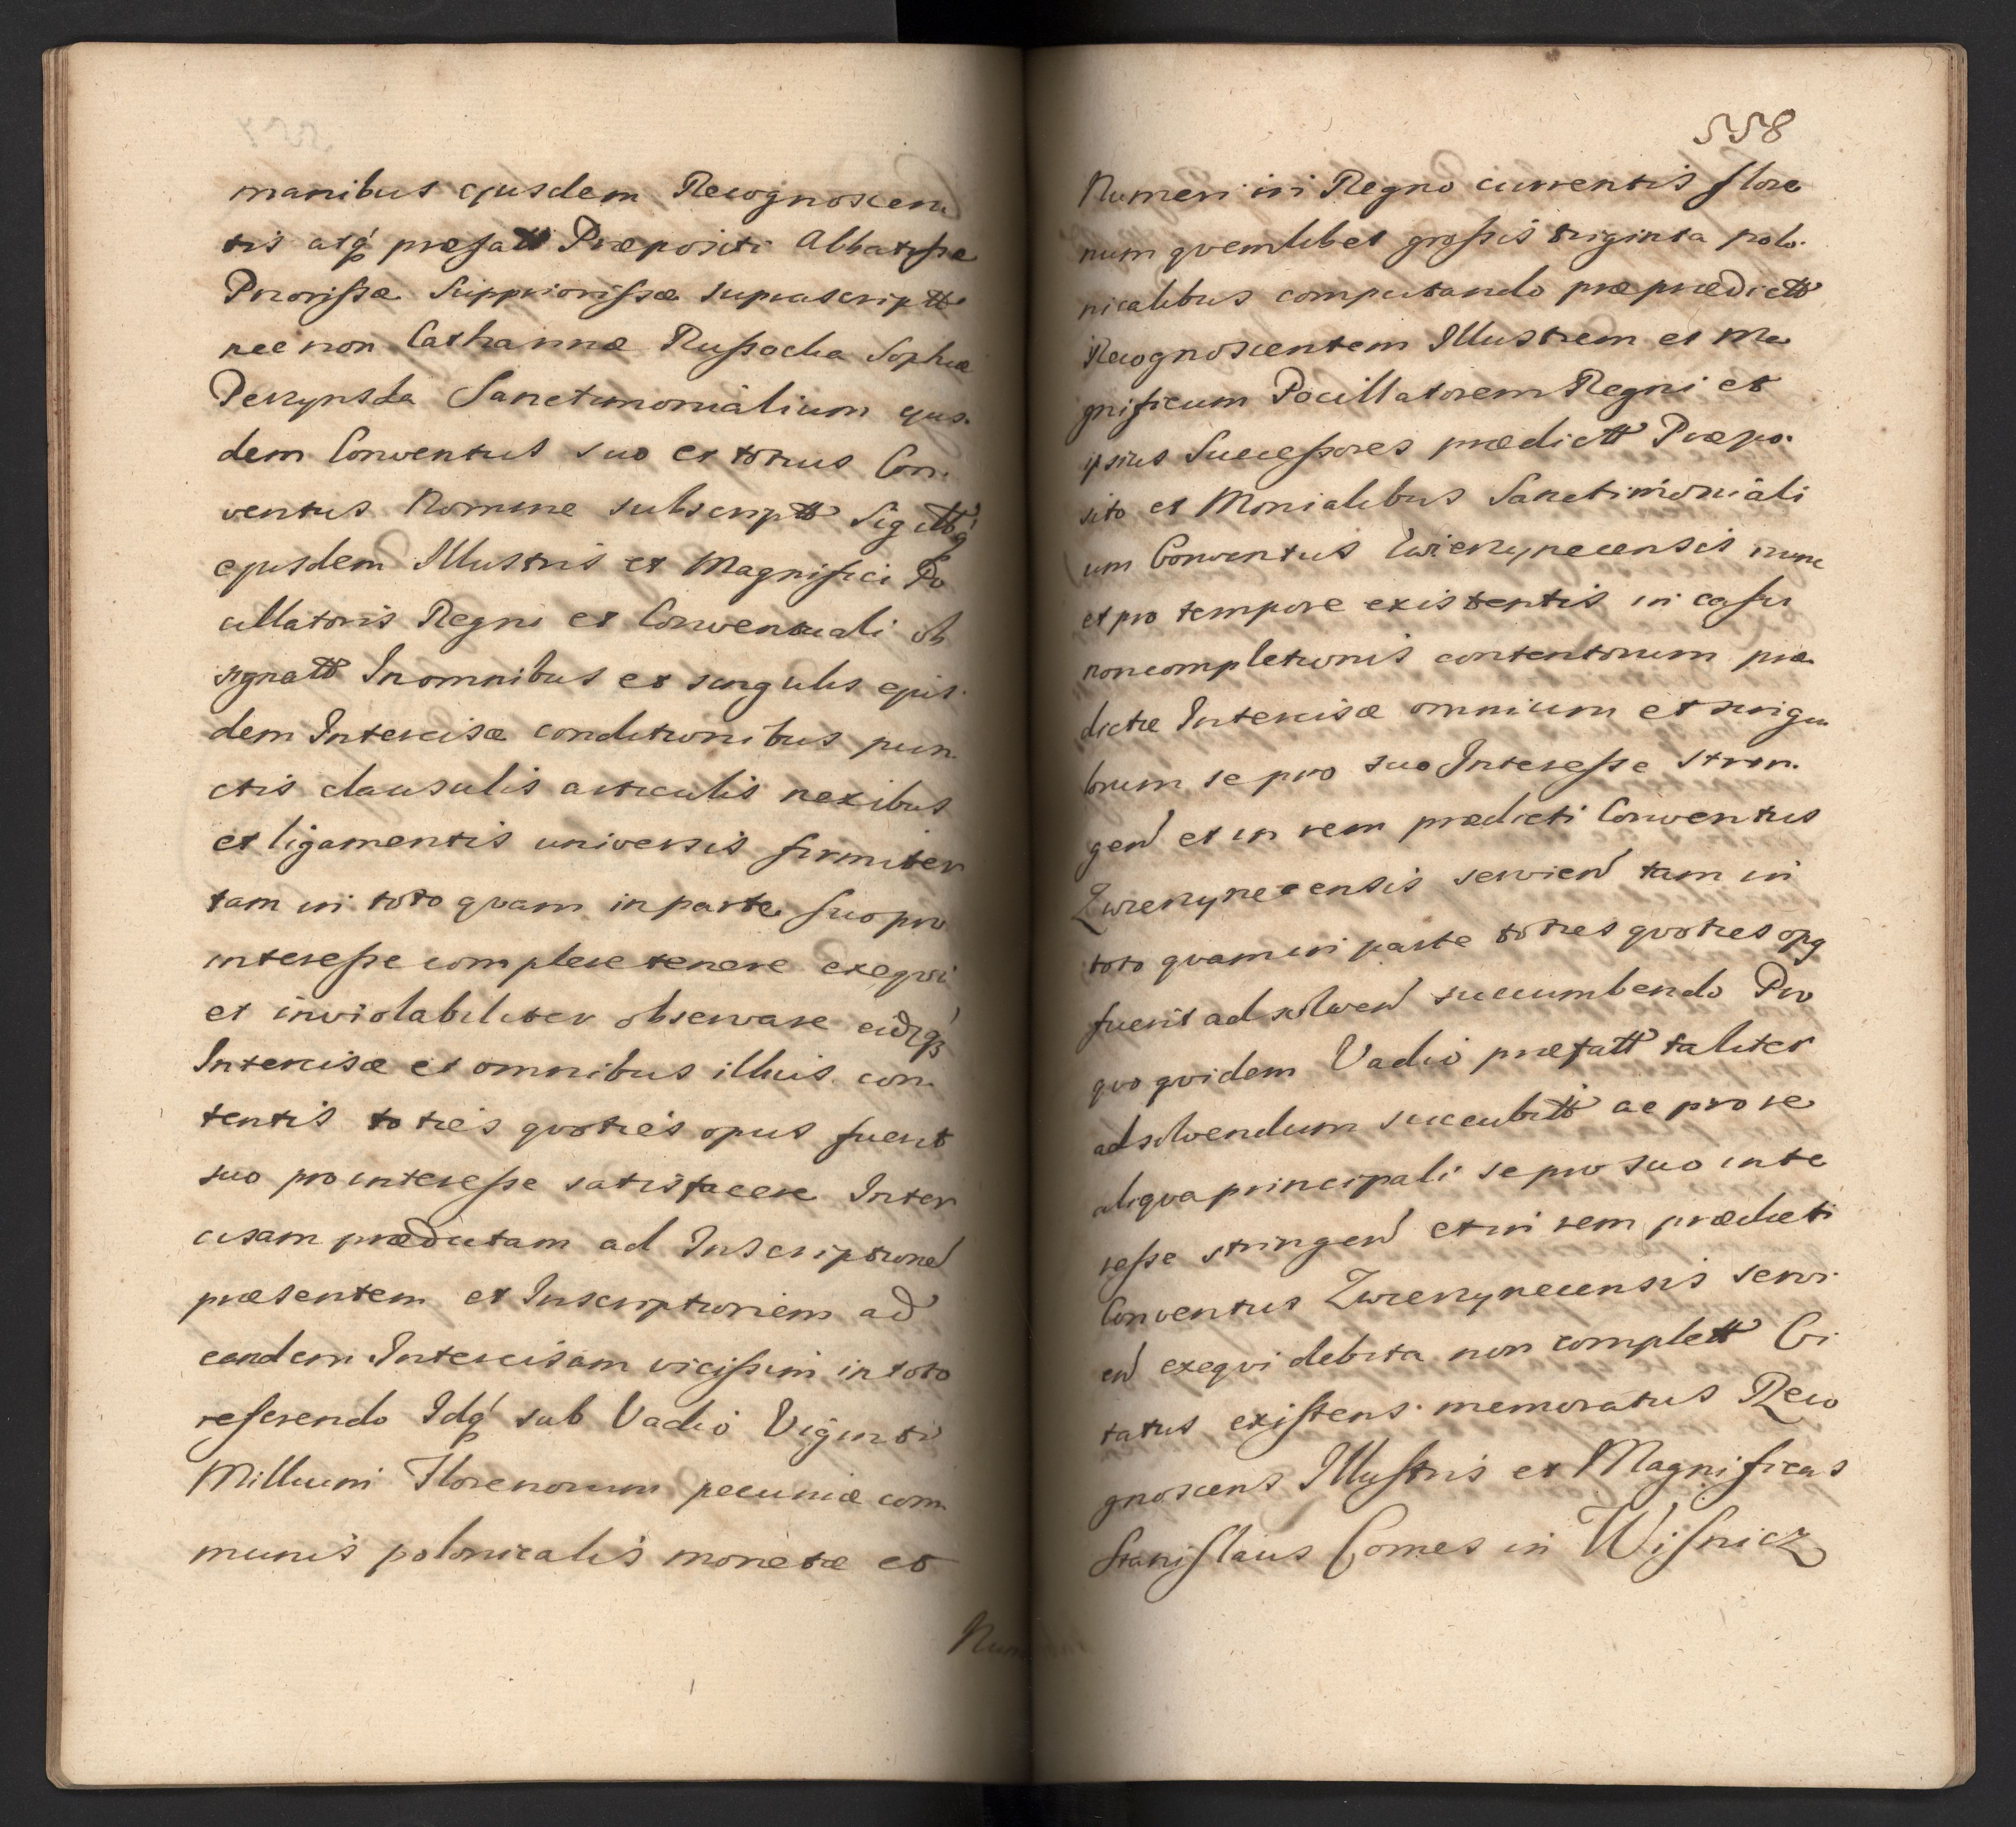 manibus ejusdem Recognoscen
tis atq́ præfatt Præpositi Abbatissæ
Priorissæ Suppriorissæ suprascriptt
nec non Catharinnæ Russocka Sophiæ
Perzynska Sanctimonialium ejus.
dem Conventus suo et totius Con.
ventus Nomine subscriptt Sigillq́
ejusdem Illustris et Magnifici Po
cillatoris Regni et Conventuali ob
signatt In omnibus et singulis ejus.
dem Intercisæ conditionibus pun.
ctis clausulis articulis nexibus
et ligamentis universis firmiter
tam in toto quam in parte suo pro
interesse complere tenere exeqvi
et inviolabiliter observare eidq́3
Intercisæ et omnibus illius con.
tentis toties qvoties opus fuerit
suo pro interesse satisfacere Inter
cisam prædictam ad Inscriptionē
præsentem et Inscriptionem ad
eandem Intercisam vicissim in toto
referendo Idq́ sub Vadio Viginti
Millium Florenorum pecuniæ com
munis polonicalis monetæ et
Num
558
Numeri in Regno currentis flore
num qvemlibet grossis triginta polo.
nicalibus computando per prædictt
Recognoscentem Illustrem et Ma
gnificum Pocillatorem Regni et
ipsius Successores prædictt Præpo.
sito et Monialibus Sanctimoniali
um Conventus Zwierzynecensis nunc
et pro tempore existentis in casu
non completionis contentorum præ
dictæ Intercisæ omnium et singu
lorum se pro suo Interesse strin.
gen et in rem prædicti Conventus
Zwierzynecensis servien tam in
toto qvam in parte toties qvoties opq
fuerit ad solven succumbendo Pro
qvo qvidem Vadio præfatt taliter
ad solvendum succubitt ac pro re
aliqva principali se pro suo inte
resse stringen et in rem prædicti
Conventus Zwierzynecensis servi.
en exeqvi debita non complett Ci
tatus existens memoratus Reco
gnoscens Illustris et Magnificus
Stanislaus Comes in Wisnicz